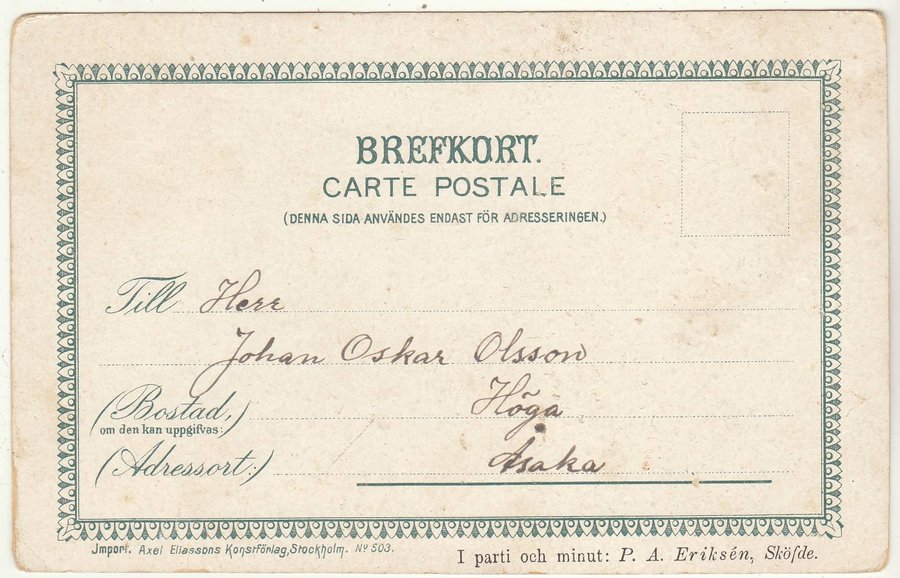 BREFKORT.
CARTE POSTALE
(DENNA SIDA ANVÄNDES ENDAST FÖR ADRESSERINGEN.)
Till Herr
Johan Oskar Olsson
(Bostad,) Höga
om den kan uppgifvas:)
(Adressort:) Åsaka
Import. Axel Eliassons Konstförlag, Stockholm. Nº 503.
I parti och minut: P. A. Eriksén, Sköfde.